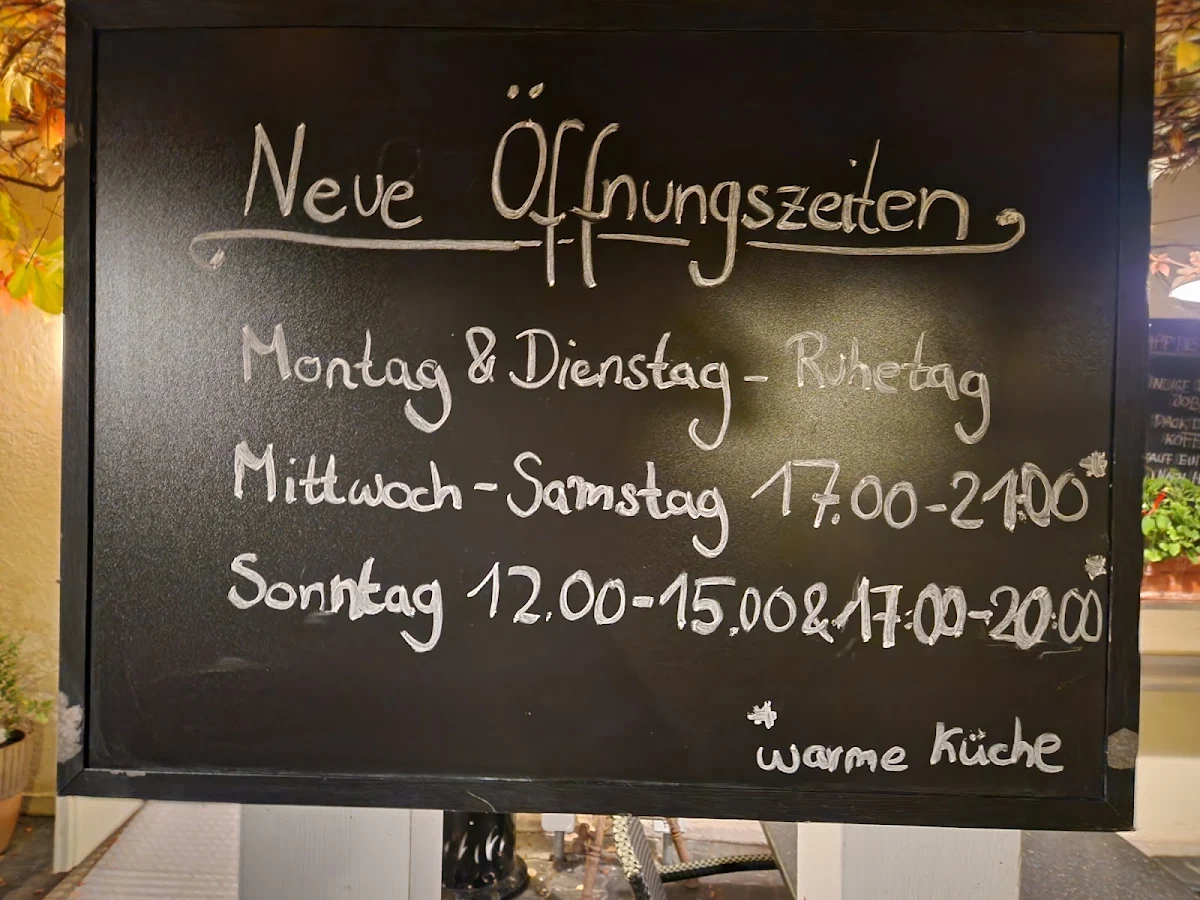 Neue Öffnungszeiten
Montag & Dienstag - Ruhetag
Mittwoch - Samstag 17.00-21:00*
Sonntag 12.00-15.00 & 17:00-20:00*
* warme Küche